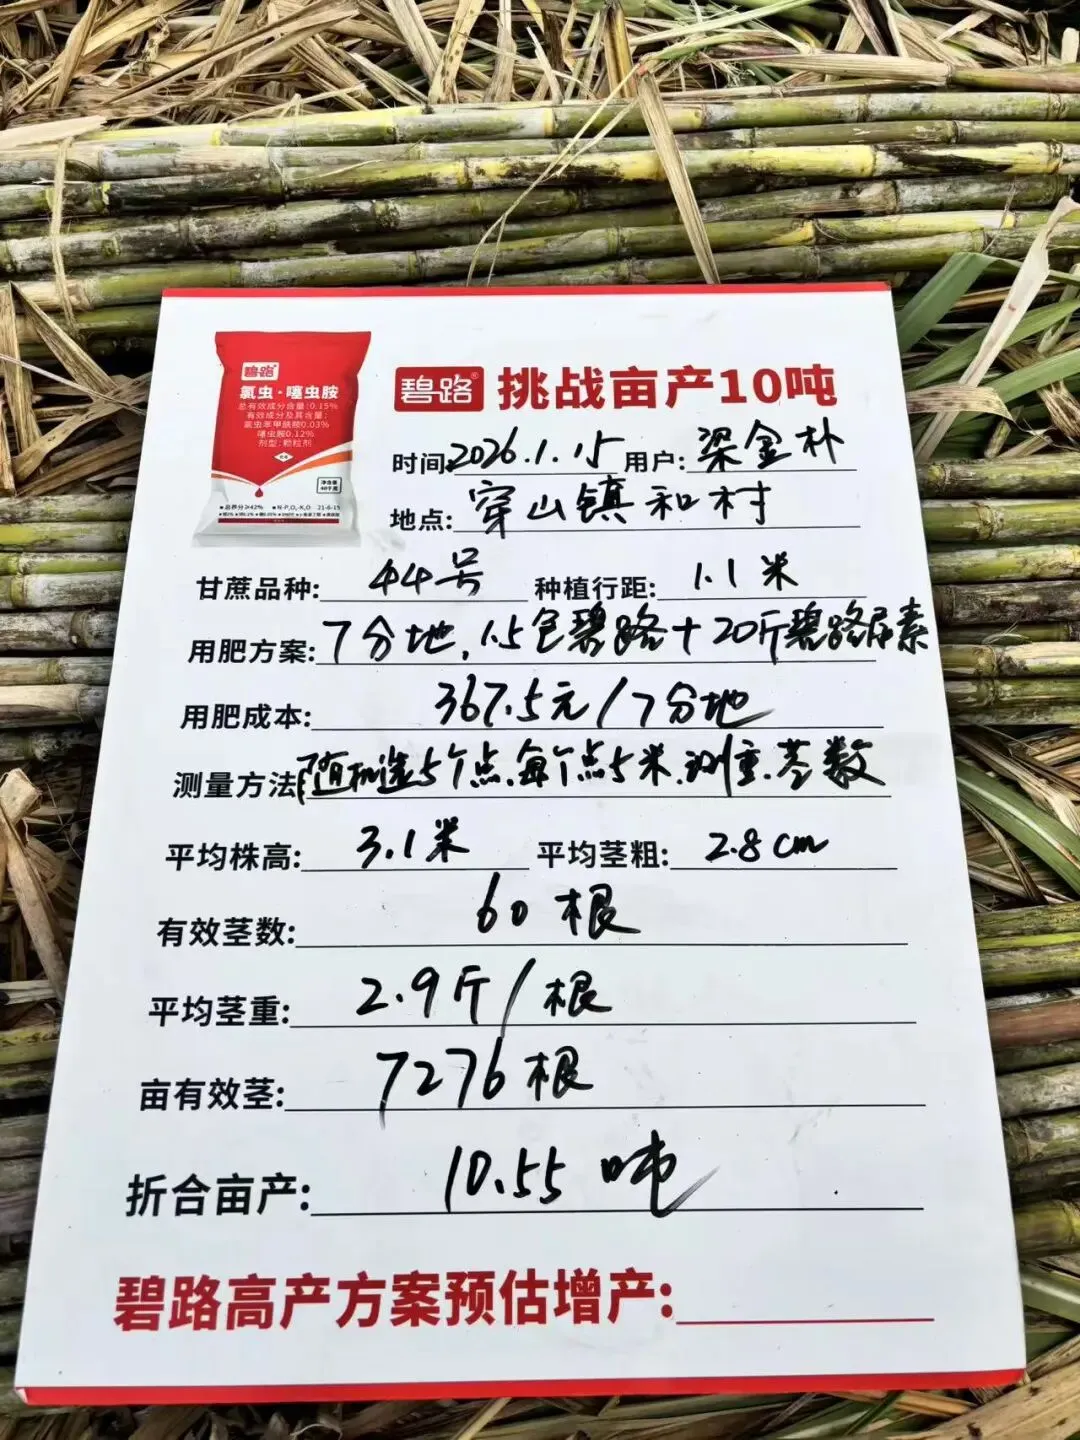 碧路
氯虫·噻虫胺
总有效成分含量:0.15%
有效成分及其含量:
氯虫苯甲酰胺0.03%
噻虫胺0.12%
剂型:颗粒剂
净含量
40千克
■总养分≥42% ■N-P₂O₅-K₂O 21-6-15
碧路® 挑战亩产10吨
时间:2026.1.15 用户:梁金朴
地点:穿山镇和村
甘蔗品种:44号 种植行距:1.1米
用肥方案:7分地,1.5包碧路+20斤碧路尿素
用肥成本:367.5元/7分地
测量方法:随机选5个点,每个点5米,测重、茎数
平均株高:3.1米 平均茎粗:2.8cm
有效茎数:60根
平均茎重:2.9斤/根
亩有效茎:7276根
折合亩产:10.55吨
碧路高产方案预估增产: